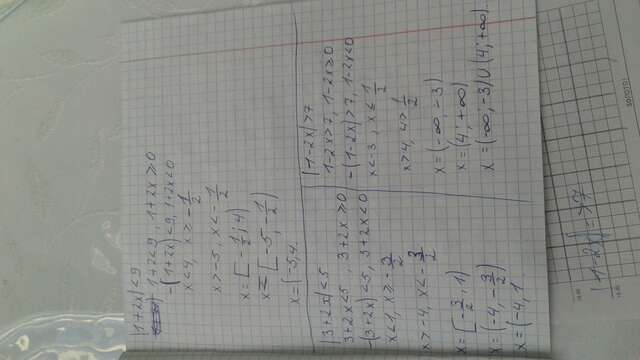 |1+2x|<9
1+2x<9, 1+2x≥0
-(1+2x)<9, 1+2x<0
x<4, x≥-1/2
x>-5, x<-1/2
x=[-1/2;4)
x=[-5,-1/2)
x=(-5,4
|3+2x|<5
3+2x<5, 3+2x≥0
-(3+2x)<5, 3+2x<0
x<1, x≥-3/2
x>-4, x<-3/2
x=[-3/2,1)
x=(-4,-3/2)
x=(-4,1
|1-2x|>7
1-2x>7, 1-2x≥0
-(1-2x)>7, 1-2x<0
x<-3, x≤1/2
x>4, x>1/2
x=(-∞,-3)
x=(4;+∞)
x=(-∞;-3)∪(4;+∞)
|1-2x|>7